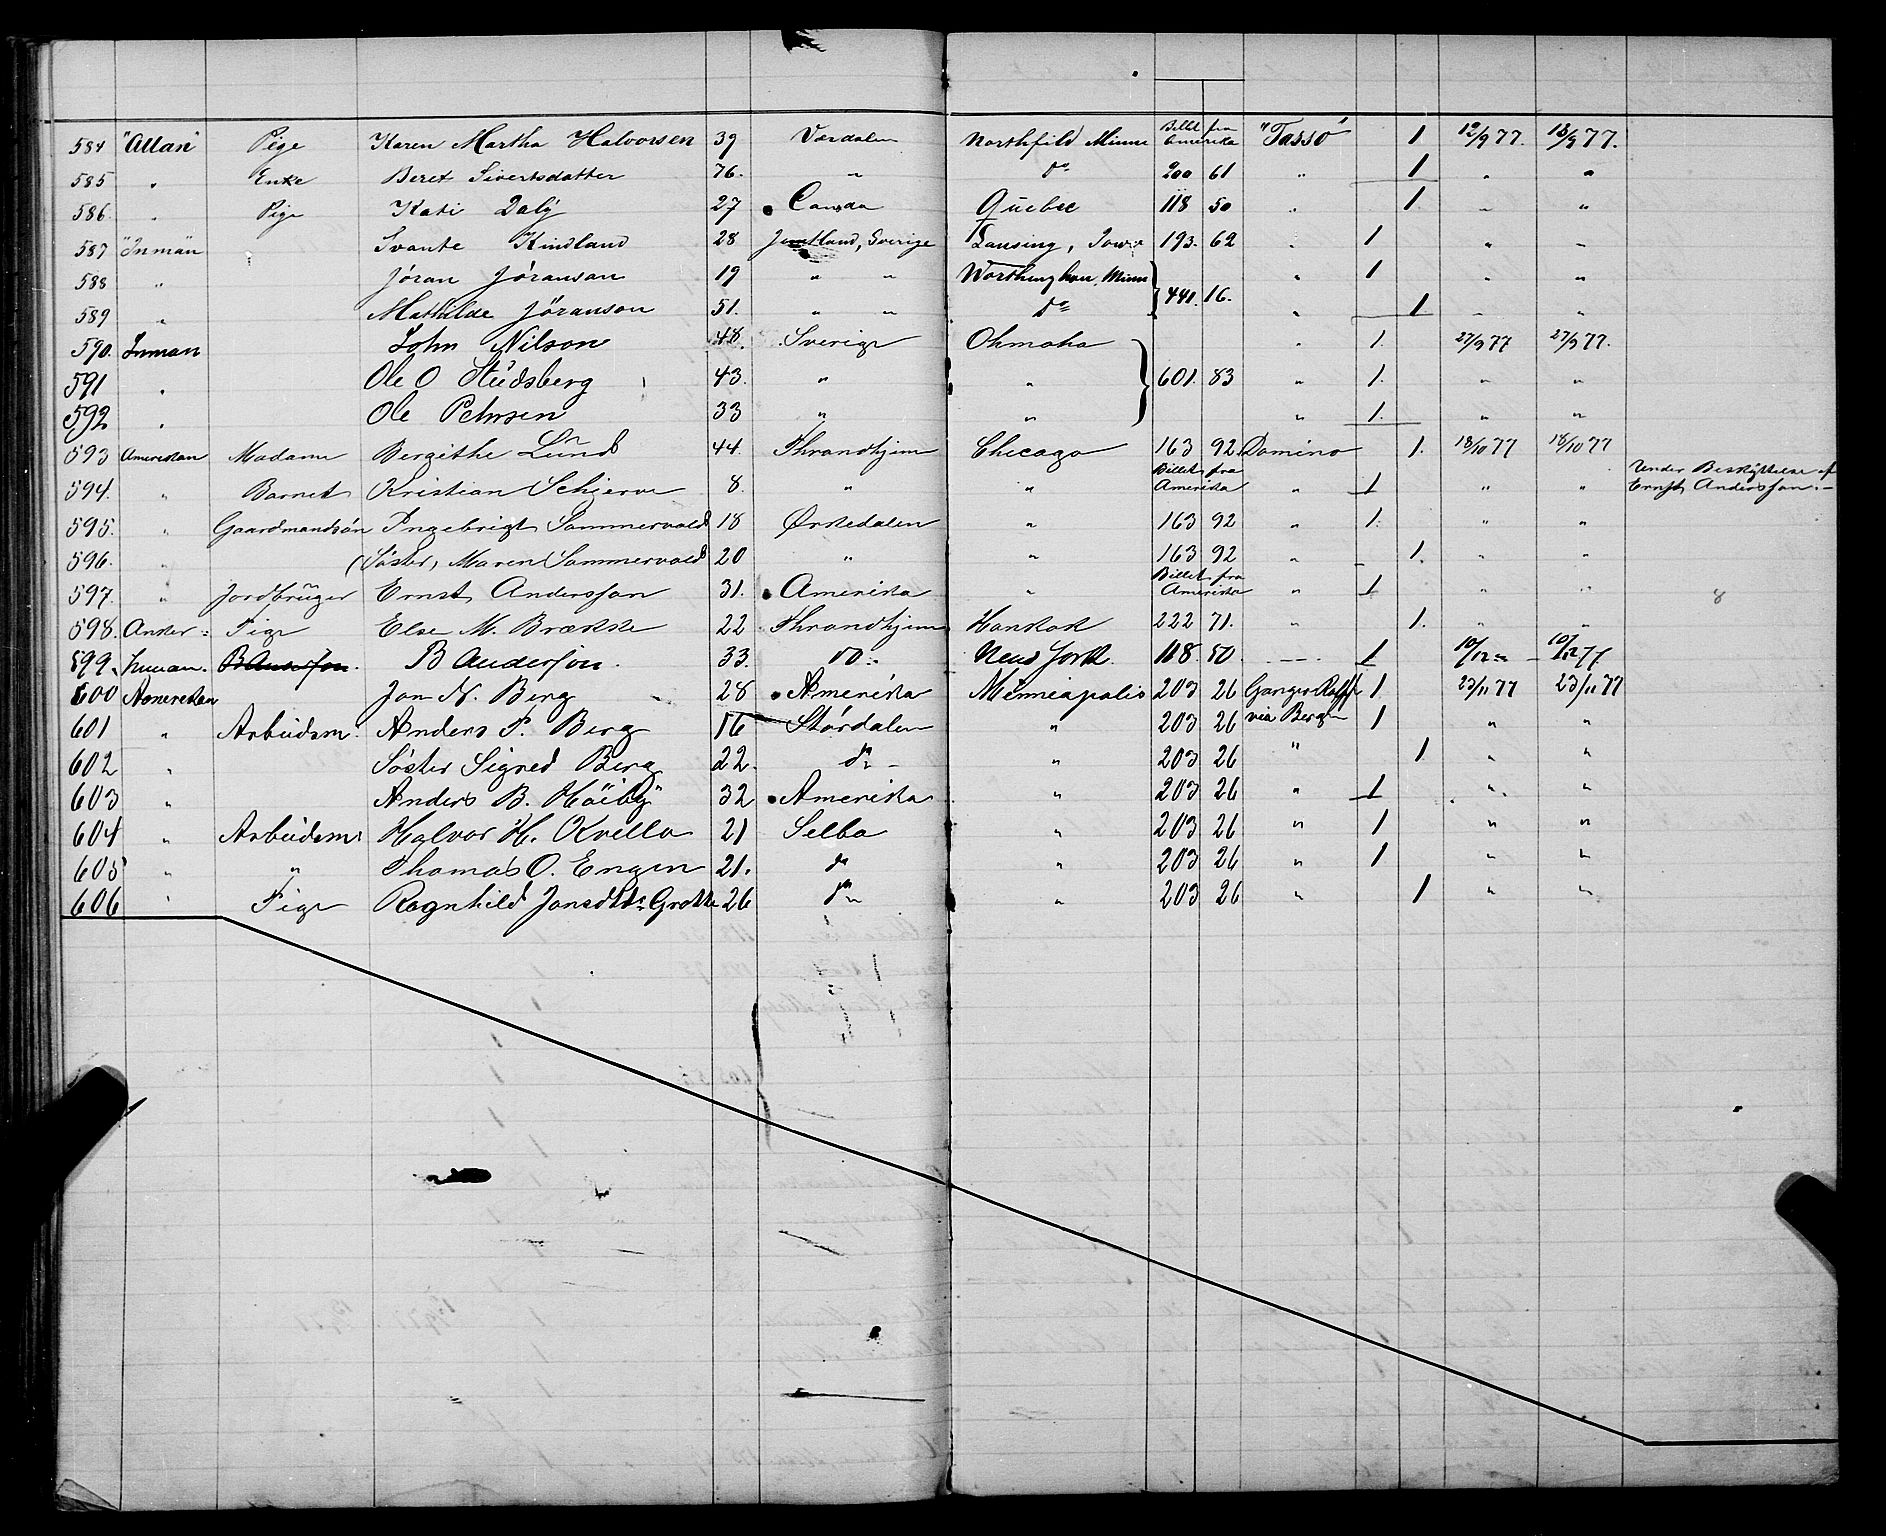 584 "Allan" Pige Karen Martha Halvorsen 39 Værdalen Northfild Minne Billet fra Amerika "Tasso" 1 12/9 77. 13/9 77.
585 " Enke Beret Sivertsdatter 76. " do 200 61 " 1 " "
586. " Pige Kati Daly 27 Canada Quebec 118 50 " 1. " "
587 "Inman Svante Kindland 28 Jemtland, Sverige Lansing, Iowa 193. 62 " 1 " "
588 " Jöran Jöranson 19 " " Worthinghon, Minn } 441. 16. " 1 " "
589 " Mathilde Jöranson 51. " " do " 1 " "
590. Inman John Nilson 48. Sverige Ohmaha " 1. 27/9 77 27/9 77.
591 " Ole O Studsberg 43. " " } 601. 83 " 1. " "
592 " Ole Petersen 33 " " " 1. " "
593 Amerikan Madame Bergithe Lund 44. Throndhjem Chicago 163 92 Domino 1. 18/10 77 18/10 77
594. " Barnet Kristian Schjerve 8. " " Billet fra Amerika " 1 " " Under Beskyttelse af Ernst Andersson.-
595. " Gaardmandsøn Ingebrigt Sommervold 18 Ørkedalen " 163 92 " 1. " "
596. " (Søster, Maren Sommervold 20 " " 163 92 " 1. " "
597. " Jordbruger Ernst Andersson 31. Amerika " Billet fra Amerika " 1 " " 8
598. Anker = Pige Else M. Brække 22 Throndhjem 222 71. " 1. " "
599. Inman. B Anderson. B Anderson. 33. do New York. 118. 50. 1 10/12 " 10/12 77
600 Amerikan Jon N. Berg 28 Amerika Minneapolis 203 26 Ganger Rolf 1. 23/11 77 23/11 77
601 " Arbeidsm. Anders P. Berg 16 Stördalen " 203 26 via Bergen 1 " "
602 " Søster Sigred Berg 22. do " 203 26 " 1 " "
603 " Anders B. Höiby 32 Amerika " 203 26 " 1 " "
604 " Arbeidsm. Halvor H. Kvello 21 Selbo " 203 26 " 1 " "
605 " " Thomas O. Engen 21. do " 203 26 " 1 " "
606 " Pige Ragnhild Jonsdtr Grøtte 26 do " 203 26 " 1 " "